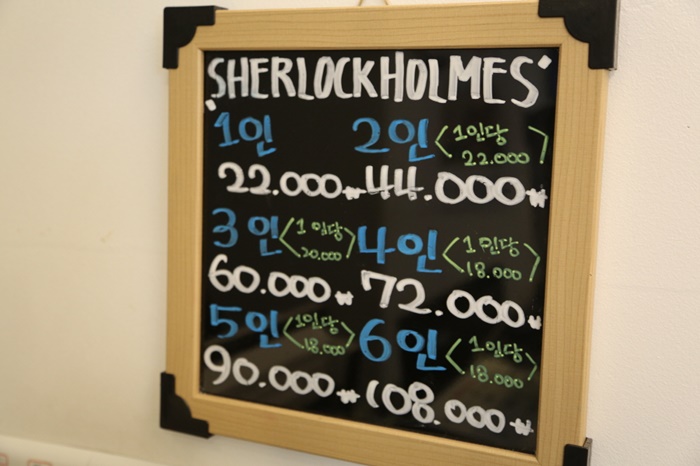 'SHERLOCKHOLMES'
1인 2인 <1인당 22.000>
22.000₩ 44.000₩
3인 <1인당 20.000> 4인 <1인당 18.000>
60.000₩ 72.000₩
5인 <1인당 18.000> 6인 <1인당 18.000>
90.000₩ 108.000₩